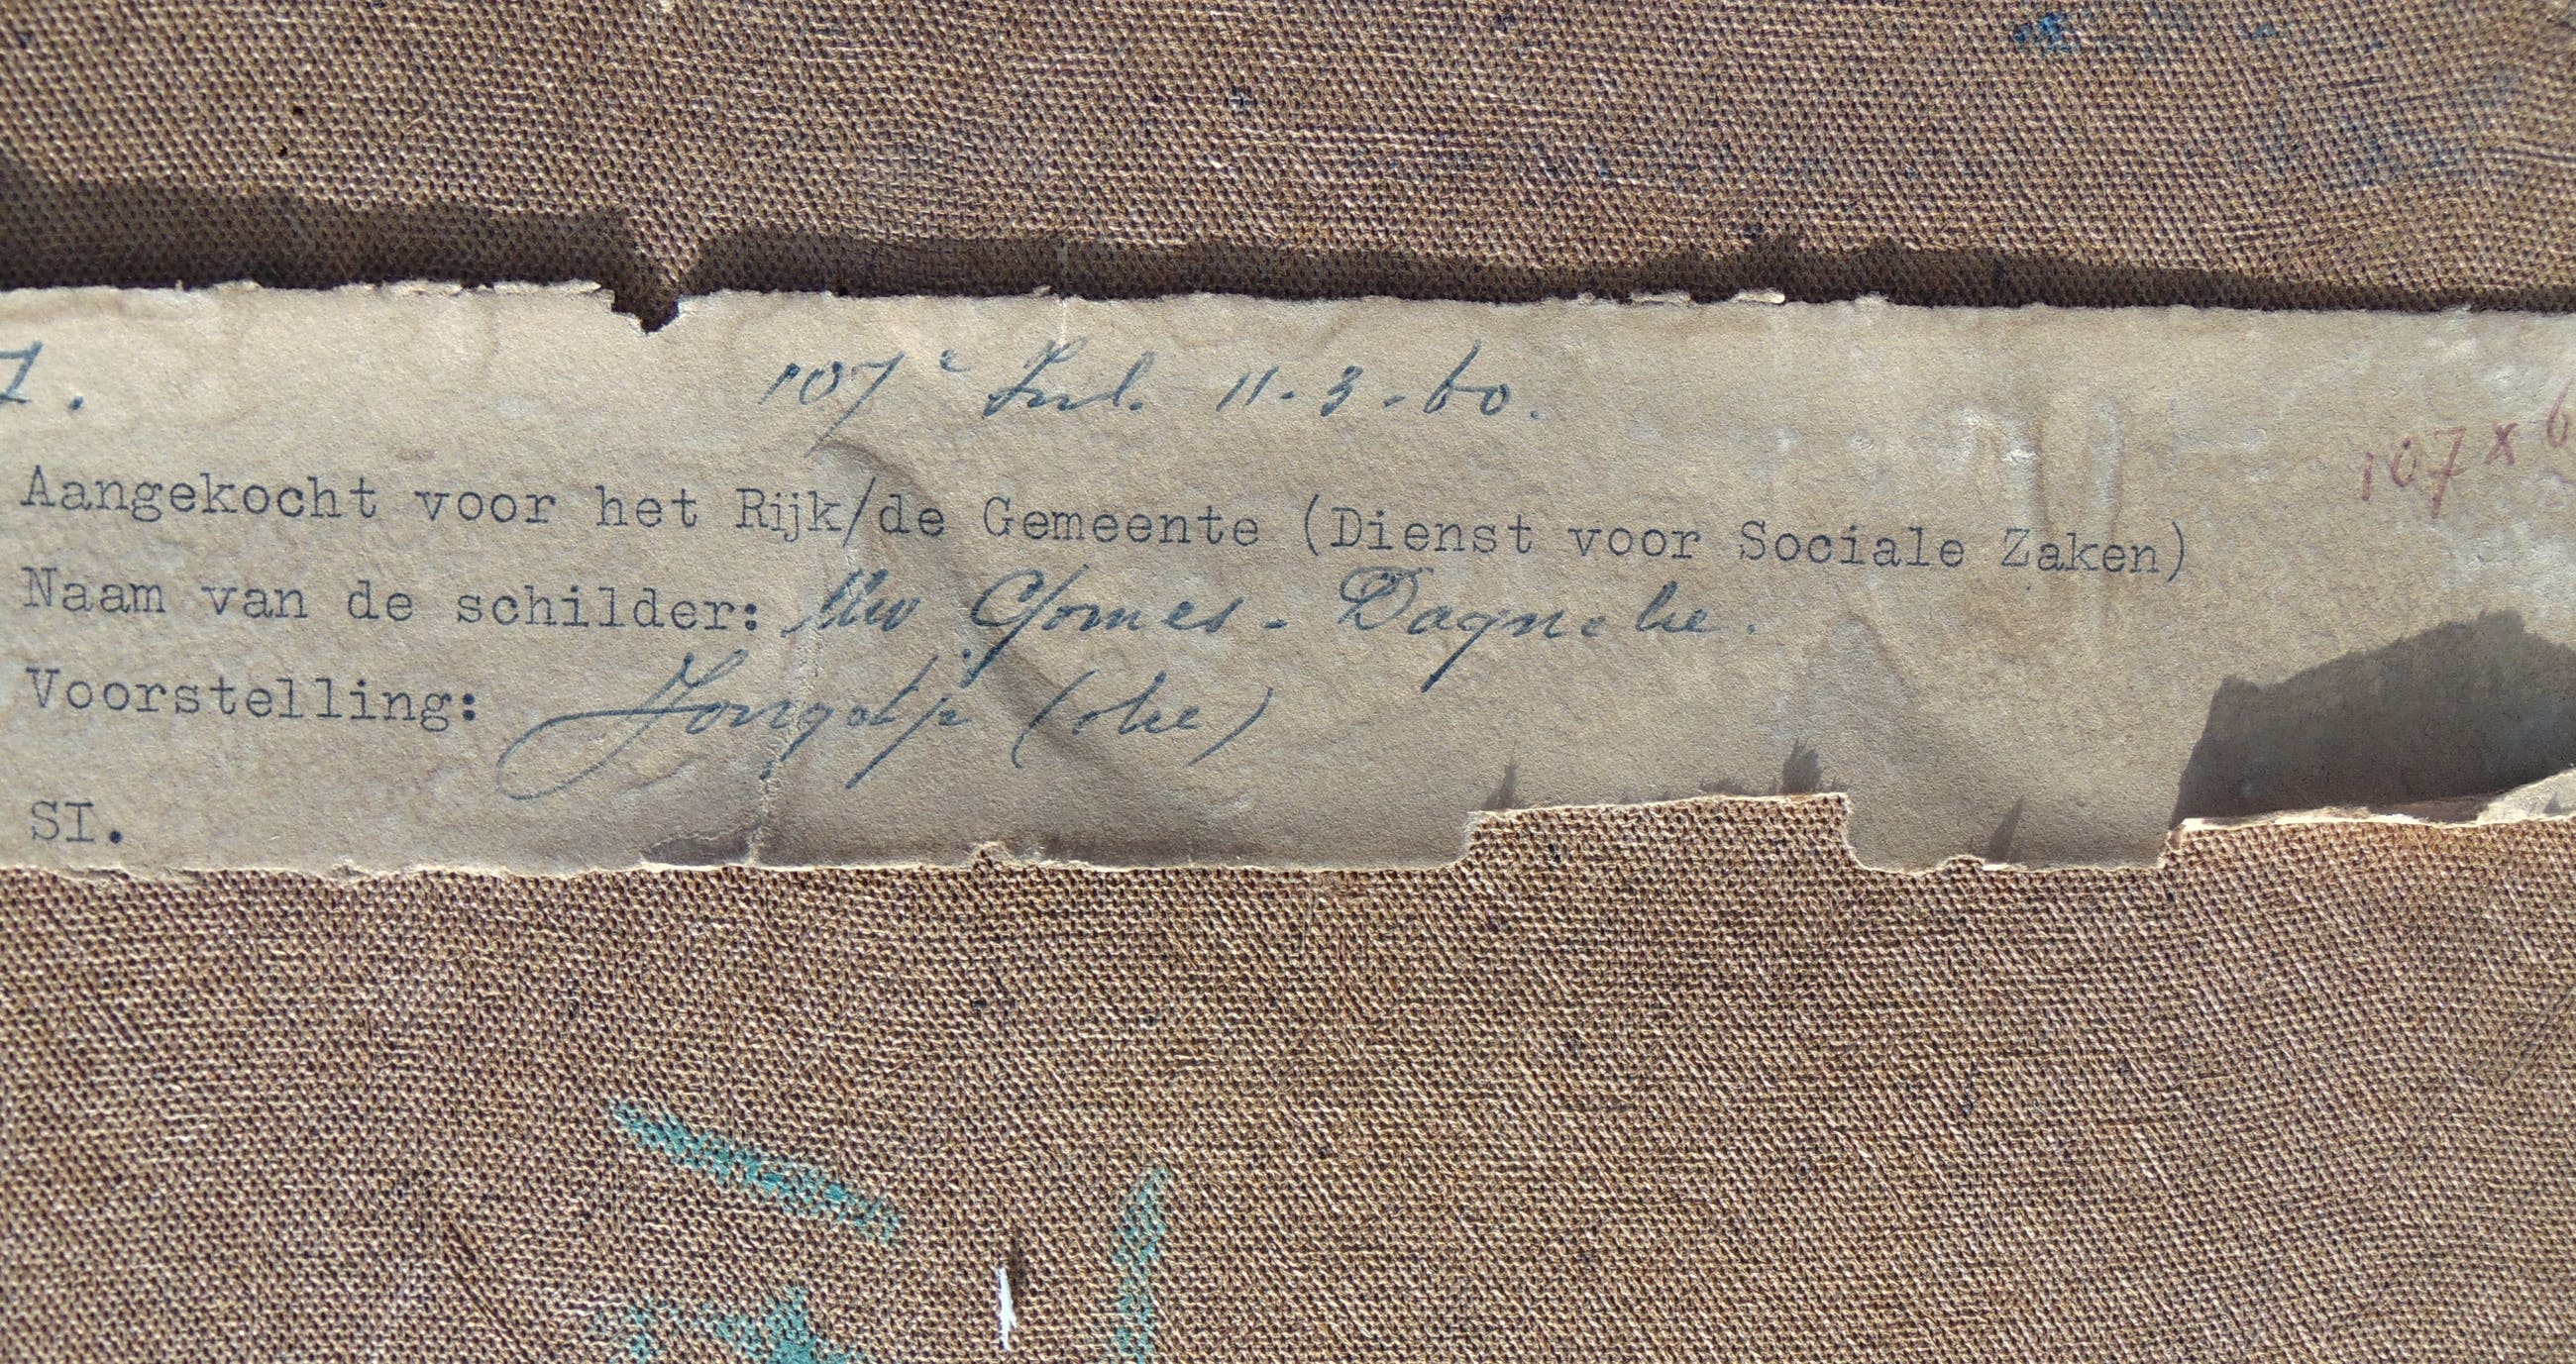 7. 107e Inl. 11-3-60.
107 x 6
Aangekocht voor het Rijk/de Gemeente (Dienst voor Sociale Zaken)
Naam van de schilder: Mw Gomes-
Voorstelling: (olie)
SI.